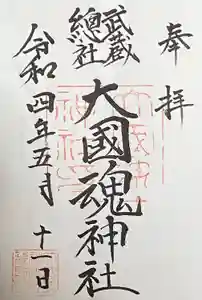 奉拝
武蔵
總社
大國魂神社
令和四年五月十一日